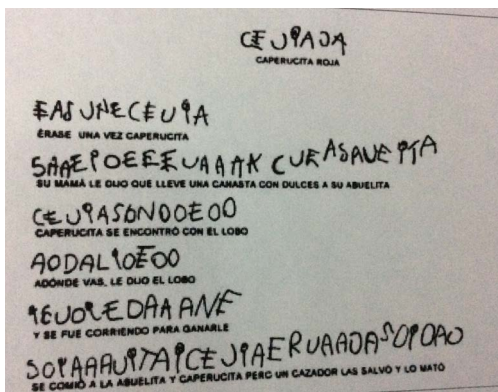 CEUIAJA
CAPERUCITA ROJA
EAS UNECEUIA
ÉRASE UNA VEZ CAPERUCITA
SU MAMÁ LE DIJO QUE LLEVE UNA CANASTA CON DULCES A SU ABUELITA
CEUIASONDOEOO
CAPERUCITA SE ENCONTRÓ CON EL LOBO
AODALIOEOO
ADÓNDE VAS, LE DIJO EL LOBO
IEUOLEDAAANE
Y SE FUE CORRIENDO PARA GANARLE
SE COMIÓ A LA ABUELITA Y CAPERUCITA PERO UN CAZADOR LAS SALVÓ Y LO MATÓ